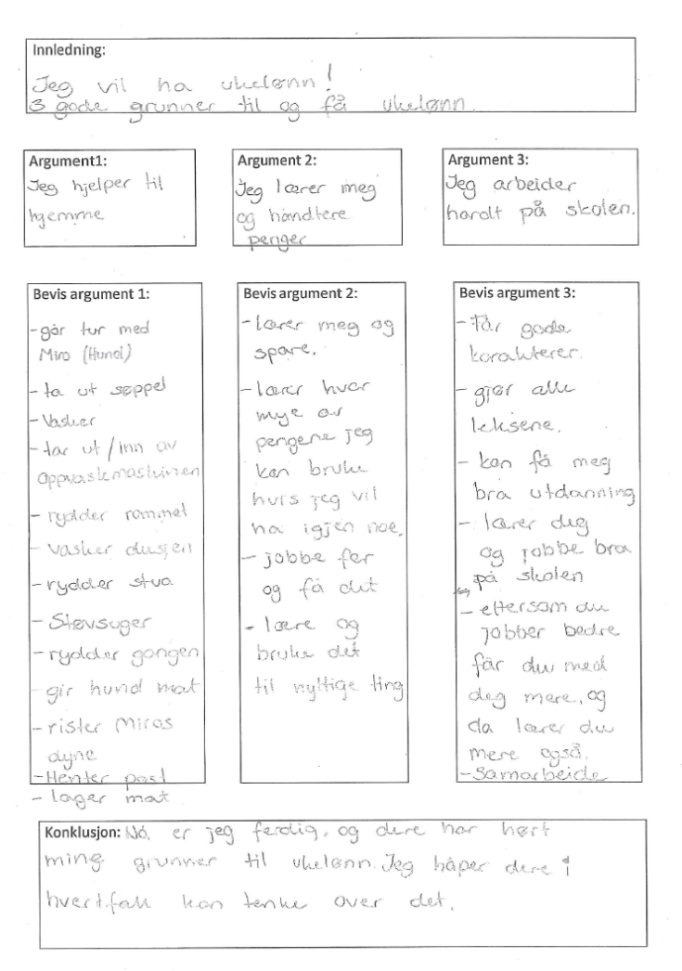 Innledning:
Jeg vil ha ukelønn!
3 gode grunner til og få ukelønn.
Argument1:
Jeg hjelper til
hjemme
Argument 2:
Jeg lærer meg
og håndtere
penger
Argument 3:
Jeg arbeider
hardt på skolen.
Bevis argument 1:
-går tur med
Miro (Hund)
- ta ut søppel
- Vasker
- tar ut / inn av
oppvaskmaskinen
- rydder rommet
- vasker dusjen
- rydder stua
- Støvsuger
- rydder gangen
gir hund mat
- rister Miros
dyne
- Henter post
- lager mat
Bevis argument 2:
- lærer meg og
spare.
- lærer hvor
mye av
pengene jeg
kan bruke
hvis jeg vil
ha igjen noe.
- jobbe for
og få det
- lære og
bruke det
til nyttige ting
Bevis argument 3:
- Får gode
karakterer.
- gjør alle
leksene.
- kan få meg
bra utdanning
- lærer deg
og jobbe bra
på skolen
- ettersom du
jobber bedre
får du med
deg mere, og
da lærer du
mere også.
- Samarbeide
Konklusjon: Nå er jeg ferdig, og dere har hørt
ming grunner til ukelønn. Jeg håper dere i
hvertfall kan tenke over det.